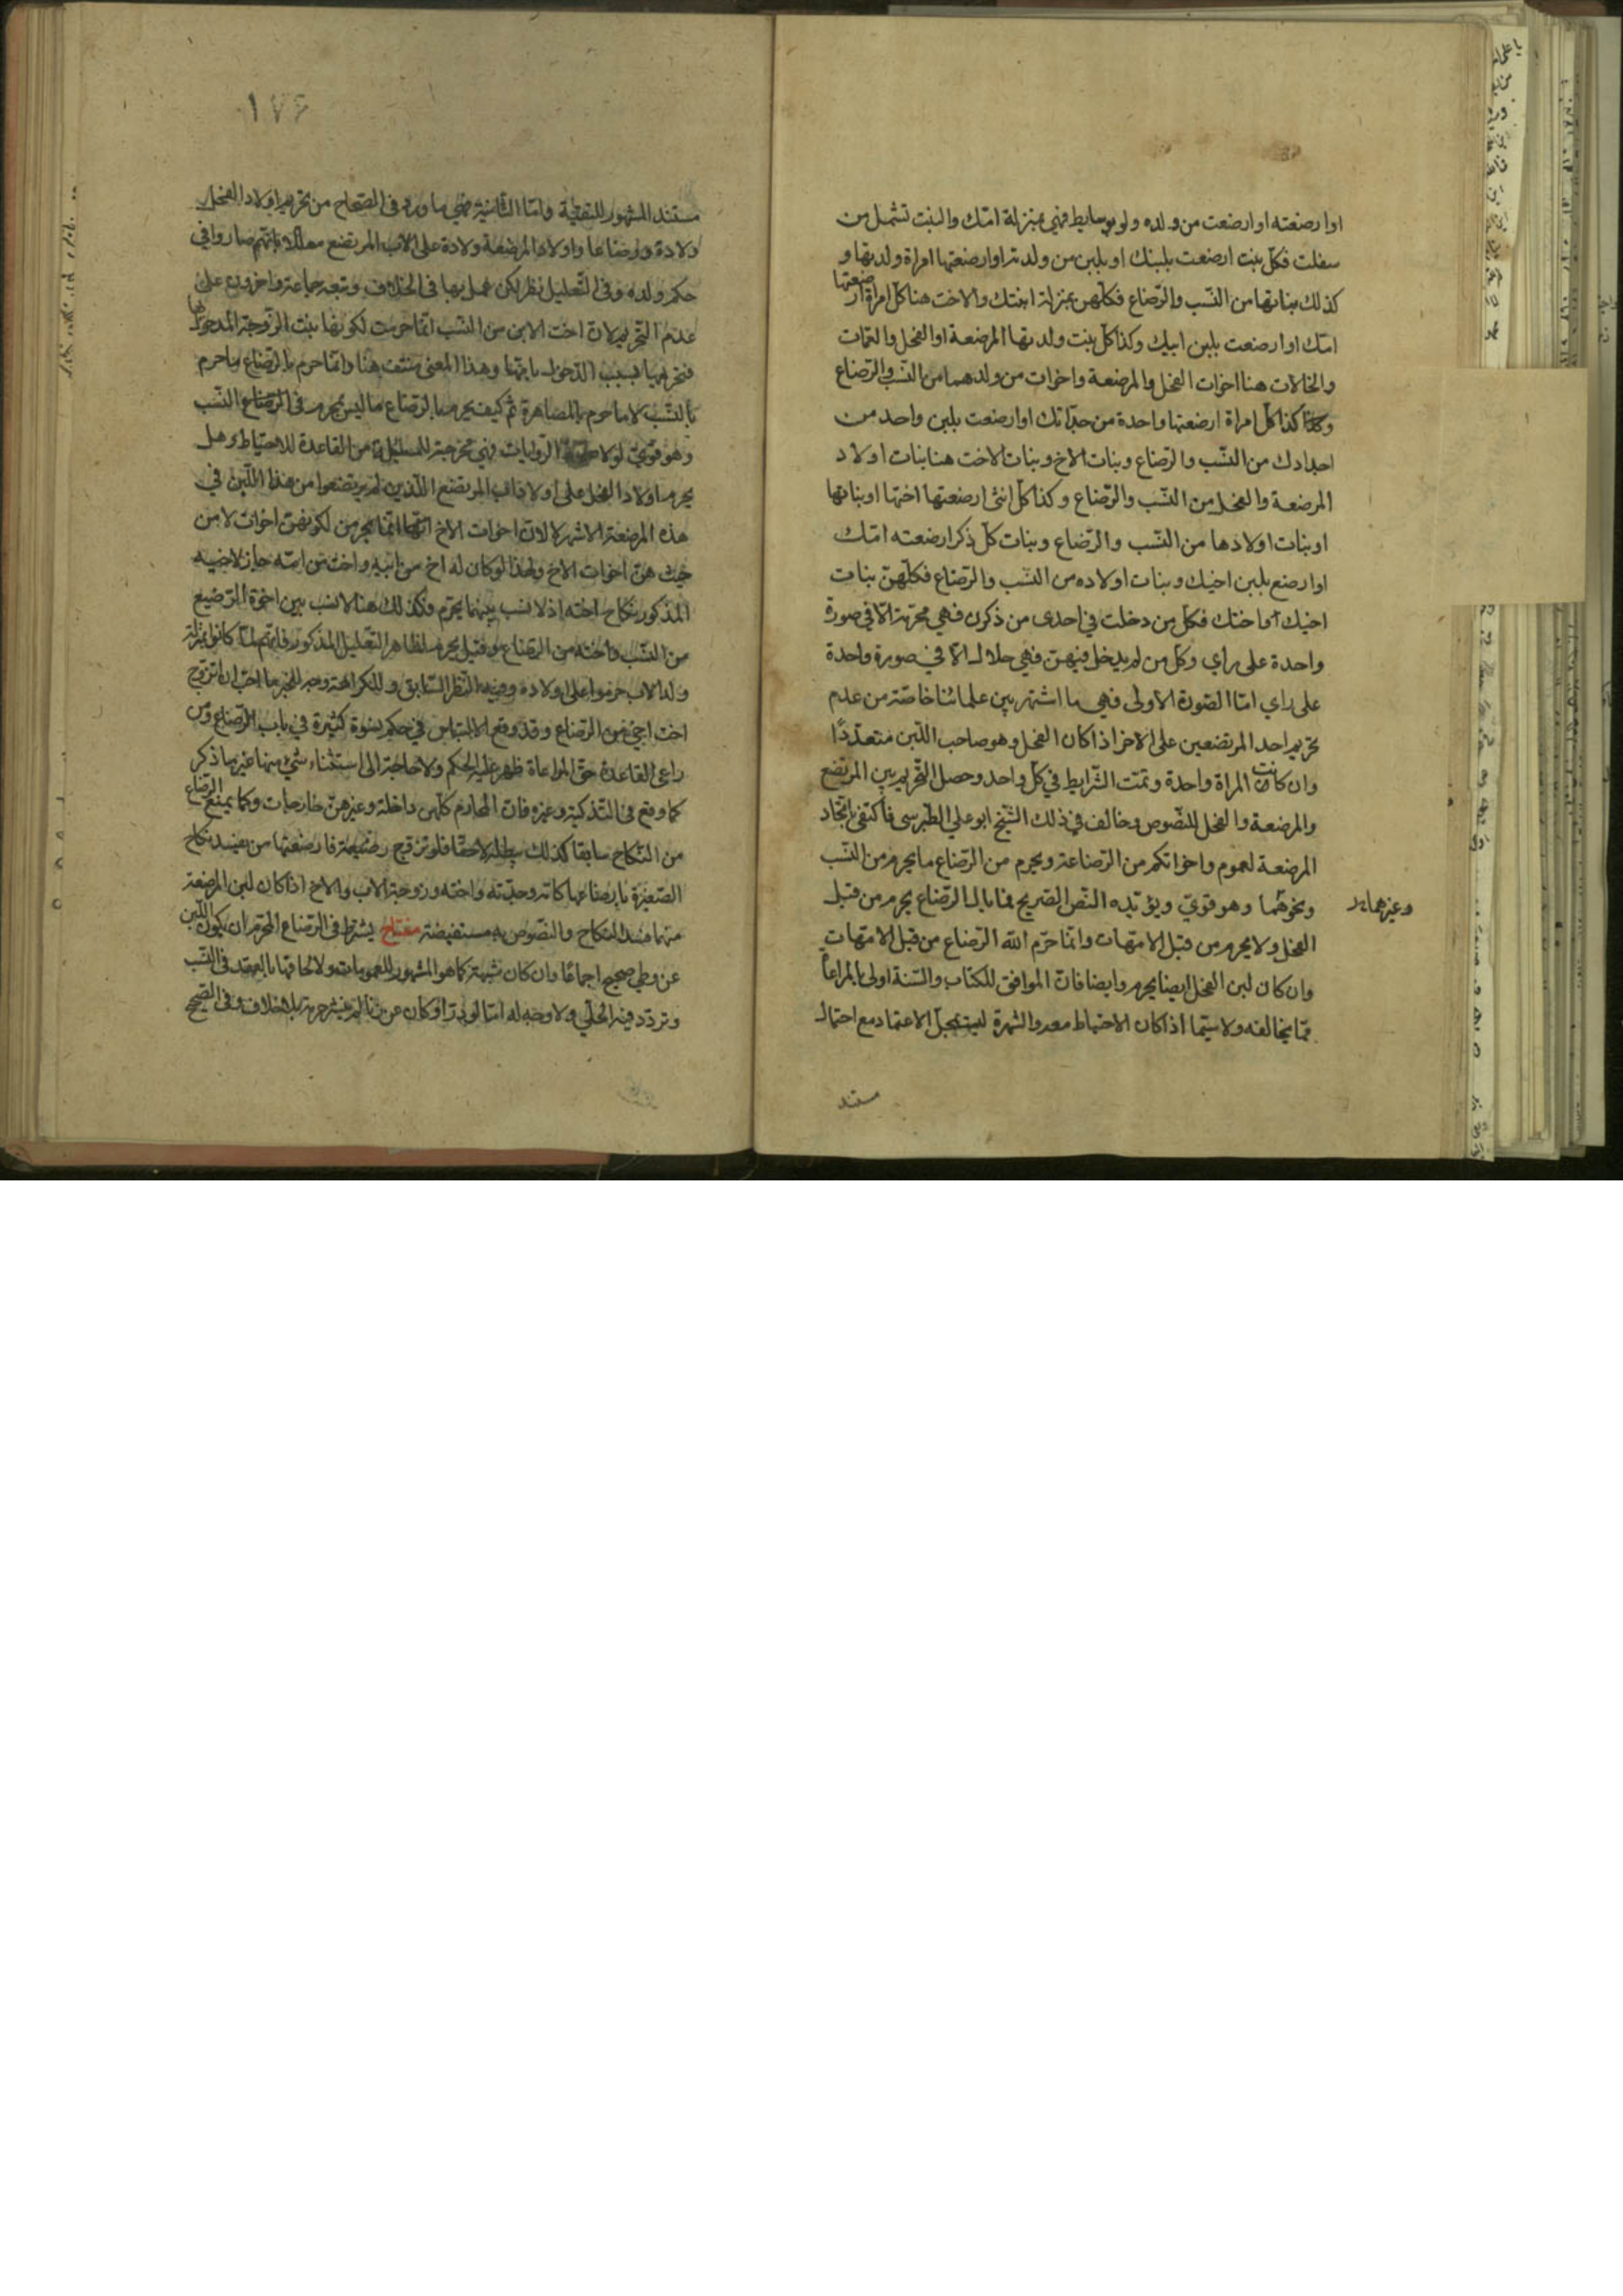 او ارضعته او ارضعت من ولده ولو بوسايط فهي بمنزلة امّك والبنت تشمل من
سفلت فكلّ بنت ارضعت بلبنك او بلبن من ولدته او ارضعتها امراة ولدتها و
كذلك بناتها من النّسب والرّضاع فكلّهنّ بمنزلة ابنتك والاخت هنا كلّ امراة ارضعتها
امّك او ارضعت بلبن ابيك وكذا كلّ بنت ولدتها المرضعة او الفحل والعمّات
والخالات هنا اخوات الفحل والمرضعة واخوات من ولدهما من النّسب والرّضاع
وكذا كلّ امراة ارضعتها واحدة من جدّاتك او ارضعت بلبن واحد من
اجدادك من النّسب والرّضاع وبنات الاخ وبنات الاخت هنا بنات اولاد
المرضعة والفحل من النّسب والرّضاع وكذا كلّ انثى ارضعتها اختها او بناتها
او بنات اولادها من النّسب والرّضاع وبنات كلّ ذكر ارضعته امّك
او ارضع بلبن اخيك وبنات اولاده من النّسب والرّضاع فكلّهنّ بنات
اخيك او اختك فكلّ من دخلت في احدى من ذكرن فهي محرّمة الّا في صورة
واحدة على راي وكلّ من لم يدخل فيهنّ فهي حلال الّا في صورة واحدة
على راي امّا الصّورة الاولى فهي ما اشتهر بين علمائنا خاصّة من عدم
تحريم احد المرتضعين على الاخر اذا كان الفحل وهو صاحب اللّبن متعدّدًا
وان كانت المراة واحدة وتمّت الشّرايط في كلّ واحد وحصل التّحريم بين المرتضع
والمرضعة والفحل للنّصوص وخالف في ذلك الشّيخ ابو علي الطّبرسي فاكتفى باتّحاد
المرضعة لعموم واخواتكم من الرّضاعة ويحرم من الرّضاع ما يحرم من النّسب
ونحوهما وهو قويّ ويؤيّده النّص الصّريح فما بال الرّضاع يحرم من قبل
وغيرهما
الفحل ولا يحرم من قبل الامّهات وانّما حرّم الله الرّضاع من قبل الامّهات
وان كان لبن الفحل ايضا يحرم وايضا فانّ الموافق للكتاب والسّنة اولى بالمراعاة
ممّا يخالفه ولا سيّما اذا كان الاحتياط معه والشّهرة ليست بمحلّ الاعتماد مع احتمال
مستند
١٧٤
مستند المشهور للتقيّة وامّا الثّانية فهي ما ورد في الصّحاح من تحريم اولاد الفحل
ولادة ورضاعا واولاد المرضعة ولادة على الاب المرتضع معلّلا بانّهم صاروا في
حكم ولده وفي التّعليل نظر لكن عمل بها في الخلاف وتبعه جماعة واخرون على
عدم التّحريم لانّ اخت الابن من النّسب انّما حرمت لكونها بنت الزّوجة المدخول بها
فتحريمها بسبب الدّخول بامّها وهذا المعنى منتف هنا وانّما حرم بالرّضاع ما حرم
بالنّسب لا ما حرم بالمصاهرة ثمّ كيف يحرم بالرّضاع ما ليس بمحرم في النّسب
وهو قويّ لولا الرّوايات فهي مخرجة للمسئلة من القاعدة للاحتياط وهل
يحرم اولاد الفحل على اولاد اب المرتضع الّذين لم يرتضعوا من هذا اللّبن في
هذه المرضعة الاشهر لا لانّ اخوات الاخ انّما يحرمن لكونهنّ اخوات لا من
حيث هنّ اخوات الاخ ولهذا لو كان له اخ من ابيه واخت من امّه جاز لاخيه
المذكور نكاح اخته اذ لا نسب بينهما يحرّم وكذلك هنا لا نسب بين اخوة الرّضيع
من النّسب واخته من الرّضاع وقيل يحرم لظاهر التّعليل المذكور فانّهم لمّا كانوا بمنزلة
ولد الاب حرموا على اولاده وفيه النّظر السّابق وللكراهة وجه للخبر ما احبّ ان اتزوّج
اخت اخي من الرّضاع وقد وقع الالتباس في حكم نسوة كثيرة في باب الرّضاع ومن
راعى القاعدة حقّ المراعاة ظهر عليه الحكم ولا حاجة الى استثناء شيء منها غير ما ذكر
كما وقع في التّذكرة وغيره فانّ المحارم كلّهن داخلة وغيرهنّ خارجات وكما يمنع الرّضاع
من النّكاح سابقا كذلك يبطله لاحقا فلو تزوّج رضيعة فارضعتها من يفسد نكاح
الصّغيرة بارضاعها كامّه وجدّته واخته وزوجة الاب والاخ اذا كان لبن المرضعة
منهما فسد النكاح والنّصوص به مستفيضة مفتاح يشترط في الرّضاع المحرّم ان يكون اللّبن
عن وطي صحيح اجماعًا وان كان شبهة كما هو المشهور للعمومات ولالحاقها بالعقد في النّسب
وتردّد فيه الحلّي ولا وجه له امّا لو درّ او كان عن زنا لم ينشر حرمة بلا خلاف وفي الصّحيح